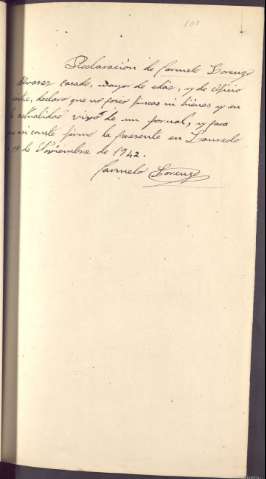 Declaración de Carmelo Lorenzo
Alvarez casado, mayor de edad, y de oficio
declaro que no poseo fincas ni bienes y en
la actualidad vivo de un jornal, y para
que así conste firmo la presente en
de Noviembre de 1942.
Carmelo Lorenzo